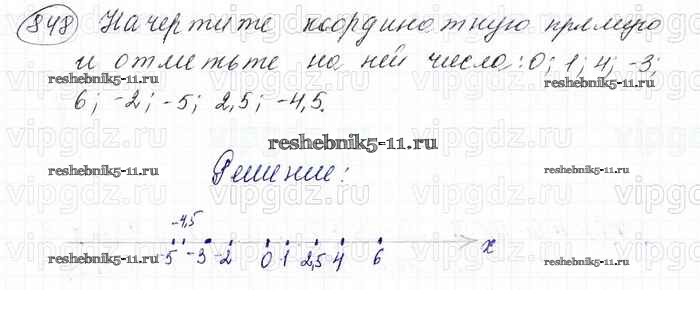 848 Начертите координатную прямую
и отметьте на ней числа: 0; 1; 4; -3;
reshebnik5-11.ru
reshebnik5-11.ru
6; -2; -5; 2,5; -4,5.
vipgdz.ru vipgdz.ru vipgdz.ru vipgdz.ru
reshebnik5-11.ru
reshebnik5-11.ru
reshebnik5-11.ru
Решение:
vipgdz.ru vipgdz.ru vipgdz.ru vipgdz.ru
-4,5
-5 -3 -2 0 1 2,5 4 6 x
reshebnik5-11.ru
reshebnik5-11.ru